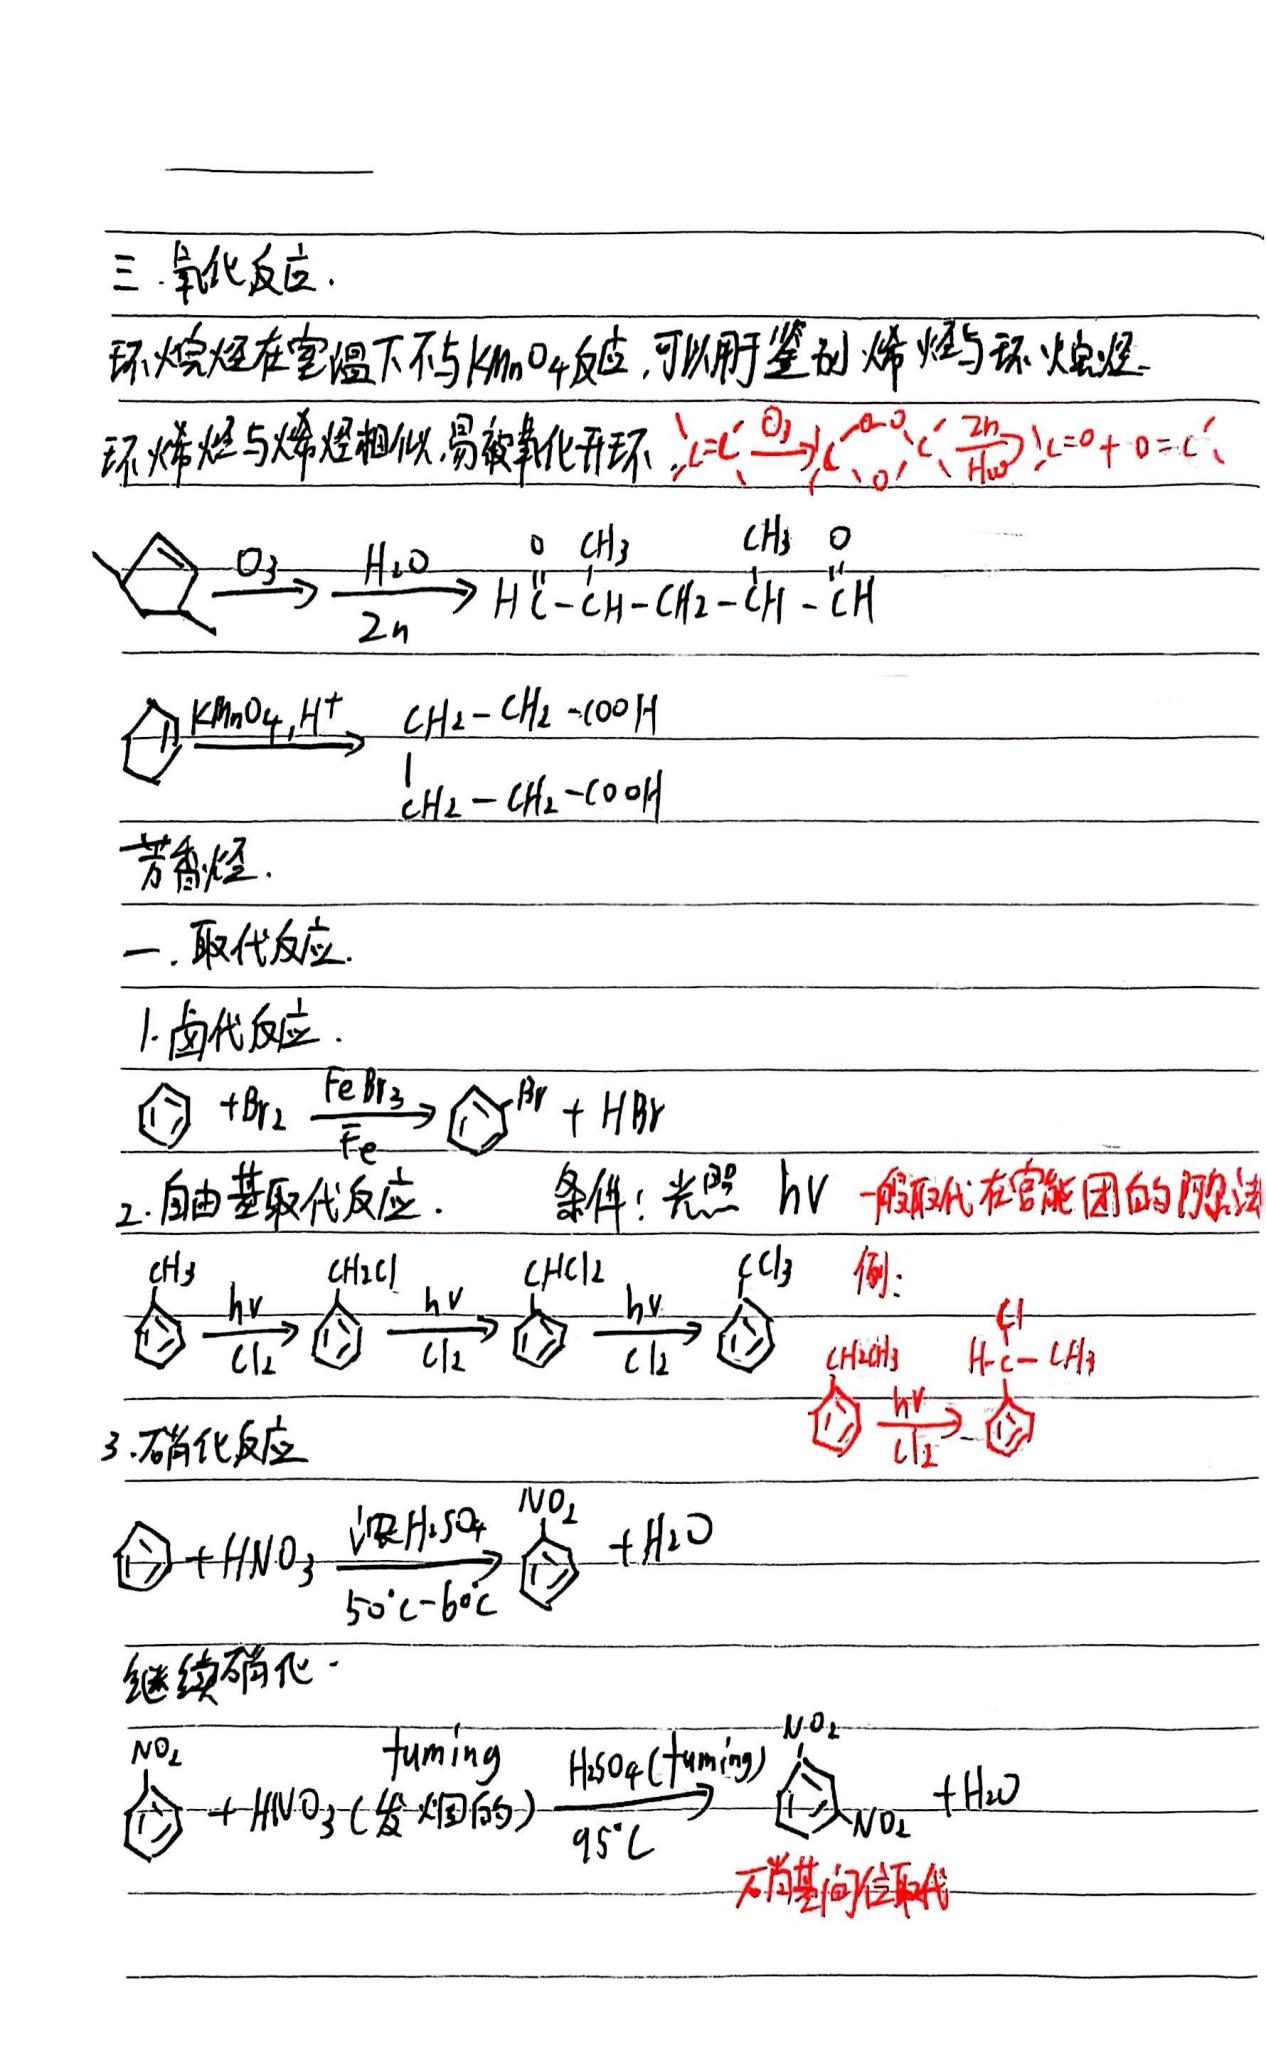 三.氧化反应.
环烷烃在室温下不与KMnO4反应,可以用于鉴别烯烃与环烷烃.
环烯烃与烯烃相似,易被氧化开环. C=C O3 C O-O C O Zn H2O C=O + O=C
O3 H2O Zn HC(=O)-CH(CH3)-CH2-CH(CH3)-C(=O)H
KMnO4,H+ CH2-CH2-COOH
CH2-CH2-COOH
芳香烃.
一.取代反应.
1.卤代反应.
+Br2 FeBr3 Fe Br + HBr
2.自由基取代反应. 条件:光照 hv 一般取代在官能团的阿尔法
CH3 hv Cl2 CH2Cl hv Cl2 CHCl2 hv Cl2 CCl3 例:
CH2CH3 hv Cl2 Cl H-C-CH3
3.硝化反应
+HNO3 浓H2SO4 50°C-60°C NO2 +H2O
继续硝化.
NO2 +HNO3(发烟的) fuming H2SO4(fuming) 95°C NO2 NO2 +H2O
硝基间位取代